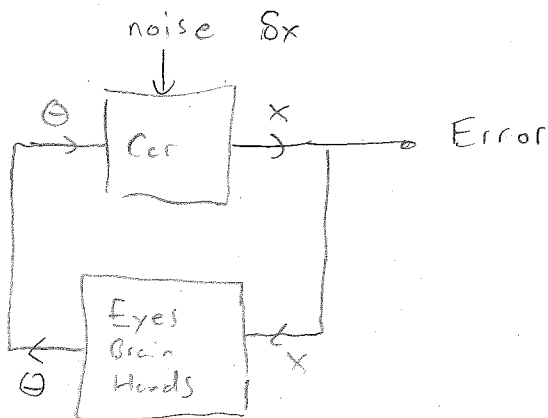 noise δx
θ
Car
x
Error
Eyes
Brain
Hands
θ
x